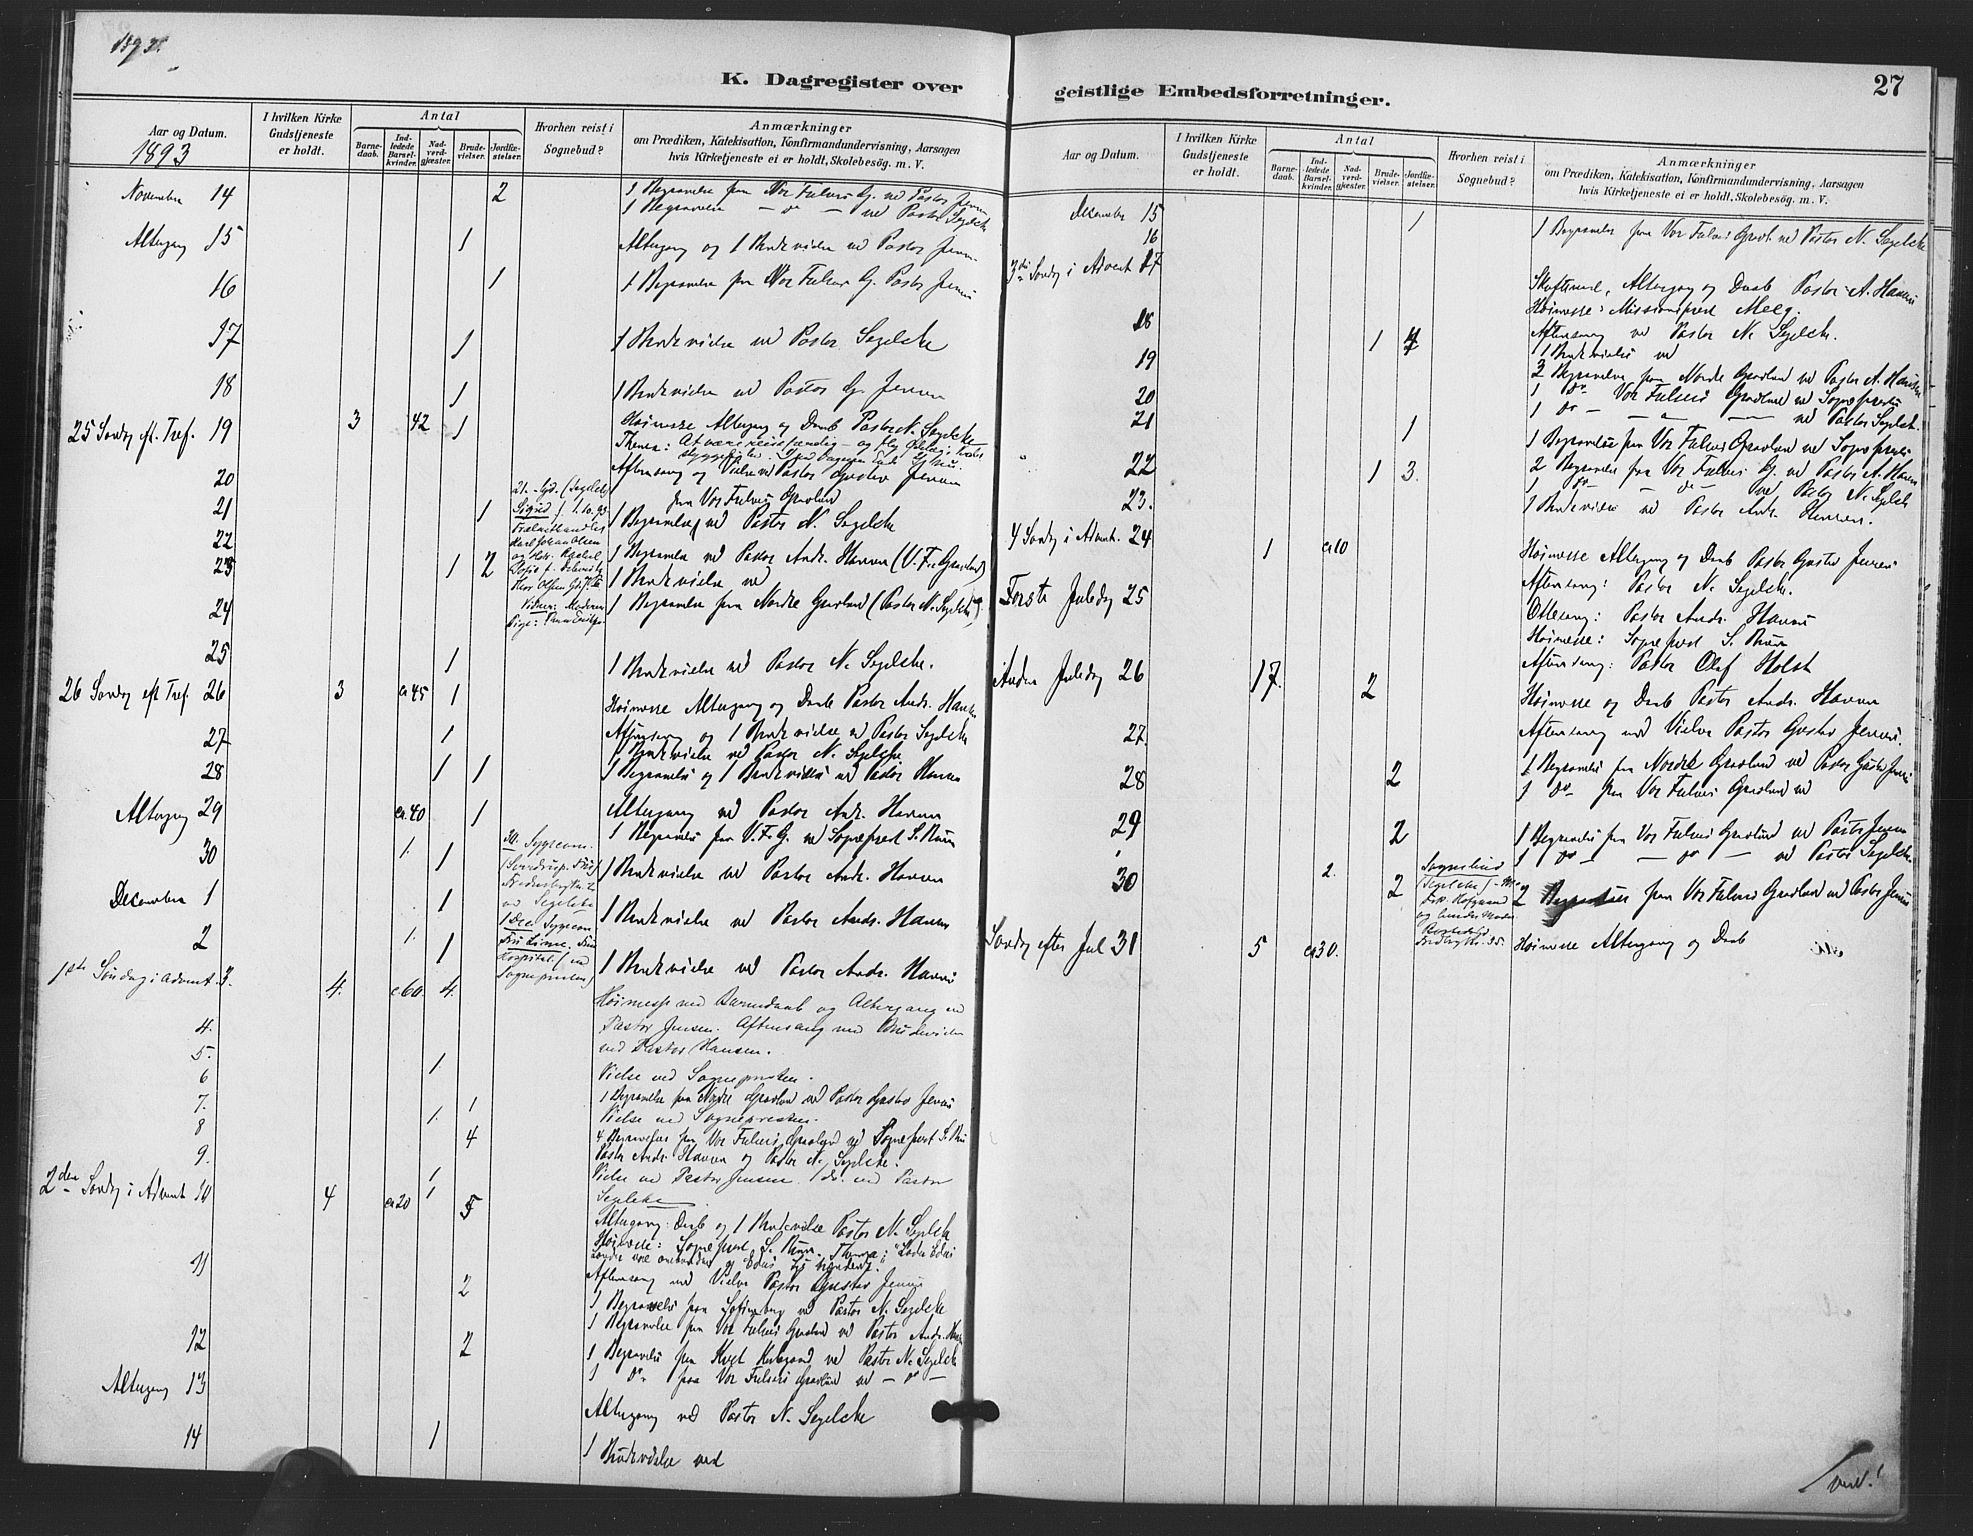 1893.
K. Dagregister over
Aar og Datum.
1893
I hvilken Kirke Gudstjeneste er holdt.
Antal
Barnedaab.
Indledede Barselkvinder.
Nadverdgjæster.
Brudevielser.
Jordfæstelser.
Hvorhen reist i Sognebud?
Anmærkninger
om Prædiken, Katekisation, Konfirmandundervisning, Aarsagen
hvis Kirketjeneste ei er holdt, Skolebesøg. m. V.
November 14 2 1 Begravelse fra Vor Frelsers G. ved Pastor Jensen
1 Begravelse — do — ved Pastor Segelcke
Altergang 15 1 Altergang og 1 Brudevielse ved Pastor Jensen
16 1 1 Begravelse fra Vor Frelsers G. Pastor Jensen
17 1 1 Brudevielse ved Pastor Segelcke
18 1 1 Brudevielse ved Pastor G. Jensen
25 Søndag eft. Tref. 19 3 42 1 Høimesse Altergang og Daab Pastor N. Segelcke
Aftensang og Vielse ved Pastor Gustav Jensen
20
fra Vor Frelsers Gravlund
21 1 1 Begravelse ved Pastor N. Segelcke
22 1 Begravelse ved Pastor Andr. Hansen (V. Fr. Gravlund)
23 1 2 1 Brudevielse ved
24 1 Begravelse fra Nordre Gravlund (Pastor N. Segelcke)
25 1 1 Brudevielse ved Pastor N. Segelcke.
26 Søndag eft Tref. 26 3 ca 45 1 Høimesse Altergang og Daab Pastor Andr. Hansen
Aftensang og 1 Brudevielse ved Pastor Segelcke
27 1 1 Brudevielse ved Pastor N. Segelcke
28 1 1 1 Begravelse og 1 Brudevielse ved Pastor Hansen
Altergang 29 ca. 40 1 Altergang ved Pastor Andr. Hansen
1 Begravelse fra V. F. G. ved Sognepræst S. Bruun
30 1. 1 1 Brudevielse ved Pastor Andr. Hansen
December 1 1 1 Brudevielse ved Pastor Andr. Hansen
2 1. 1 1 Brudevielse ved Pastor Andr. Hansen
1ste Søndag i Advent 3. 4. c 60. 4. Høimesse med Barnedaab og Altergang ved
Pastor Jensen. Aftensang med Brudevielse
ved Pastor Hansen.
4.
5. 1 Vielse ved Sognepresten.
6 1 1 Begravelse fra Nordre Gravlund ved Pastor Gustav Jensen
7. 1. Vielse ved Sognepresten.
8 4 4 Begravelser fra Vor Frelsers Gravlund ved Sognepræst S. Bruun
Pastor Andr. Hansen og Pastor N. Segelcke.
9. 1 Vielse ved Pastor Jensen. 1 do. ved Pastor
Segelcke
2den Søndag i Advent 10 4 ca 20 1 5 Altergang: Daab og 1 Brudevielse Pastor N. Segelcke
Høimesse: Sognepræst S. Bruun. Thema:
Aftensang med Vielse Pastor Gustav Jensen
11 2 1 Begravelse fra Sofienberg ved Pastor N. Segelcke
1 Begravelse fra Vor Frelsers Gravlund ved Pastor Andr. Hansen
12 2 1 Begravelse fra ved Pastor N. Segelcke
1 do fra Vor Frelsers Gravlund ved — do —
Altergang 13 Altergang ved Pastor N. Segelcke
14 1 1 Brudevielse ved
27
geistlige Embedsforretninger.
Aar og Datum.
I hvilken Kirke Gudstjeneste er holdt.
Antal
Barnedaab.
Indledede Barselkvinder.
Nadverdgjæster.
Brudevielser.
Jordfæstelser.
Hvorhen reist i Sognebud?
Anmærkninger
om Prædiken, Katekisation, Konfirmandundervisning, Aarsagen
hvis Kirketjeneste ei er holdt, Skolebesøg. m. V.
December 15 1 1 Begravelse fra Vor Frelsers Gravl. ved Pastor N. Segelcke
16
3die Søndag i Advent 17 Skriftemaal, Altergang og Daab Pastor A. Hansen
Høimesse: Missionspræst
Aftensang ved Pastor N. Segelcke.
18 1 4 1 Brudevielse ved
19 2 Begravelser fra Nordre Gravlund ved Pastor A. Hansen
1 do Vor Frelsers Gravlund ved Sognepræsten
20 1 do — — ved Pastor Segelcke
21 1 1 Begravelse fra Vor Frelsers Gravlund ved Sognepræsten
22 1 3. 2 Begravelser fra Vor Frelsers G. ved Pastor A. Hansen
1 do — do — ved Pastor N. Segelcke
23. 1 Brudevielse ved Pastor Andr. Hansen.
4 Søndag i Advent. 24 1 ca 10 Høimesse Altergang og Daab Pastor Gustav Jensen
Aftensang: Pastor N. Segelcke.
Første Juledag 25 Ottesang: Pastor Andr. Hansen
Høimesse: Sognepræst S. Bruun
Aftensang: Pastor Olaf Holst
Anden Juledag 26 17. 2 Høimesse og Daab Pastor Andr. Hansen
Aftensang med Vielse Pastor Gustav Jensen.
27. 1 Begravelse fra Nordre Gravlund ved Pastor Gustav Jensen
28 2 1 do fra Vor Frelsers Gravlund ved
29 2 1 Begravelse fra Vor Frelsers Gravlund ved Pastor Jensen
1 do — do — ved Pastor Segelcke
30 2. 2 2 Begravelser fra Vor Frelsers Gravlund ved Pastor Jensen
Søndag efter Jul 31 5 ca 30. Høimesse Altergang og Daab